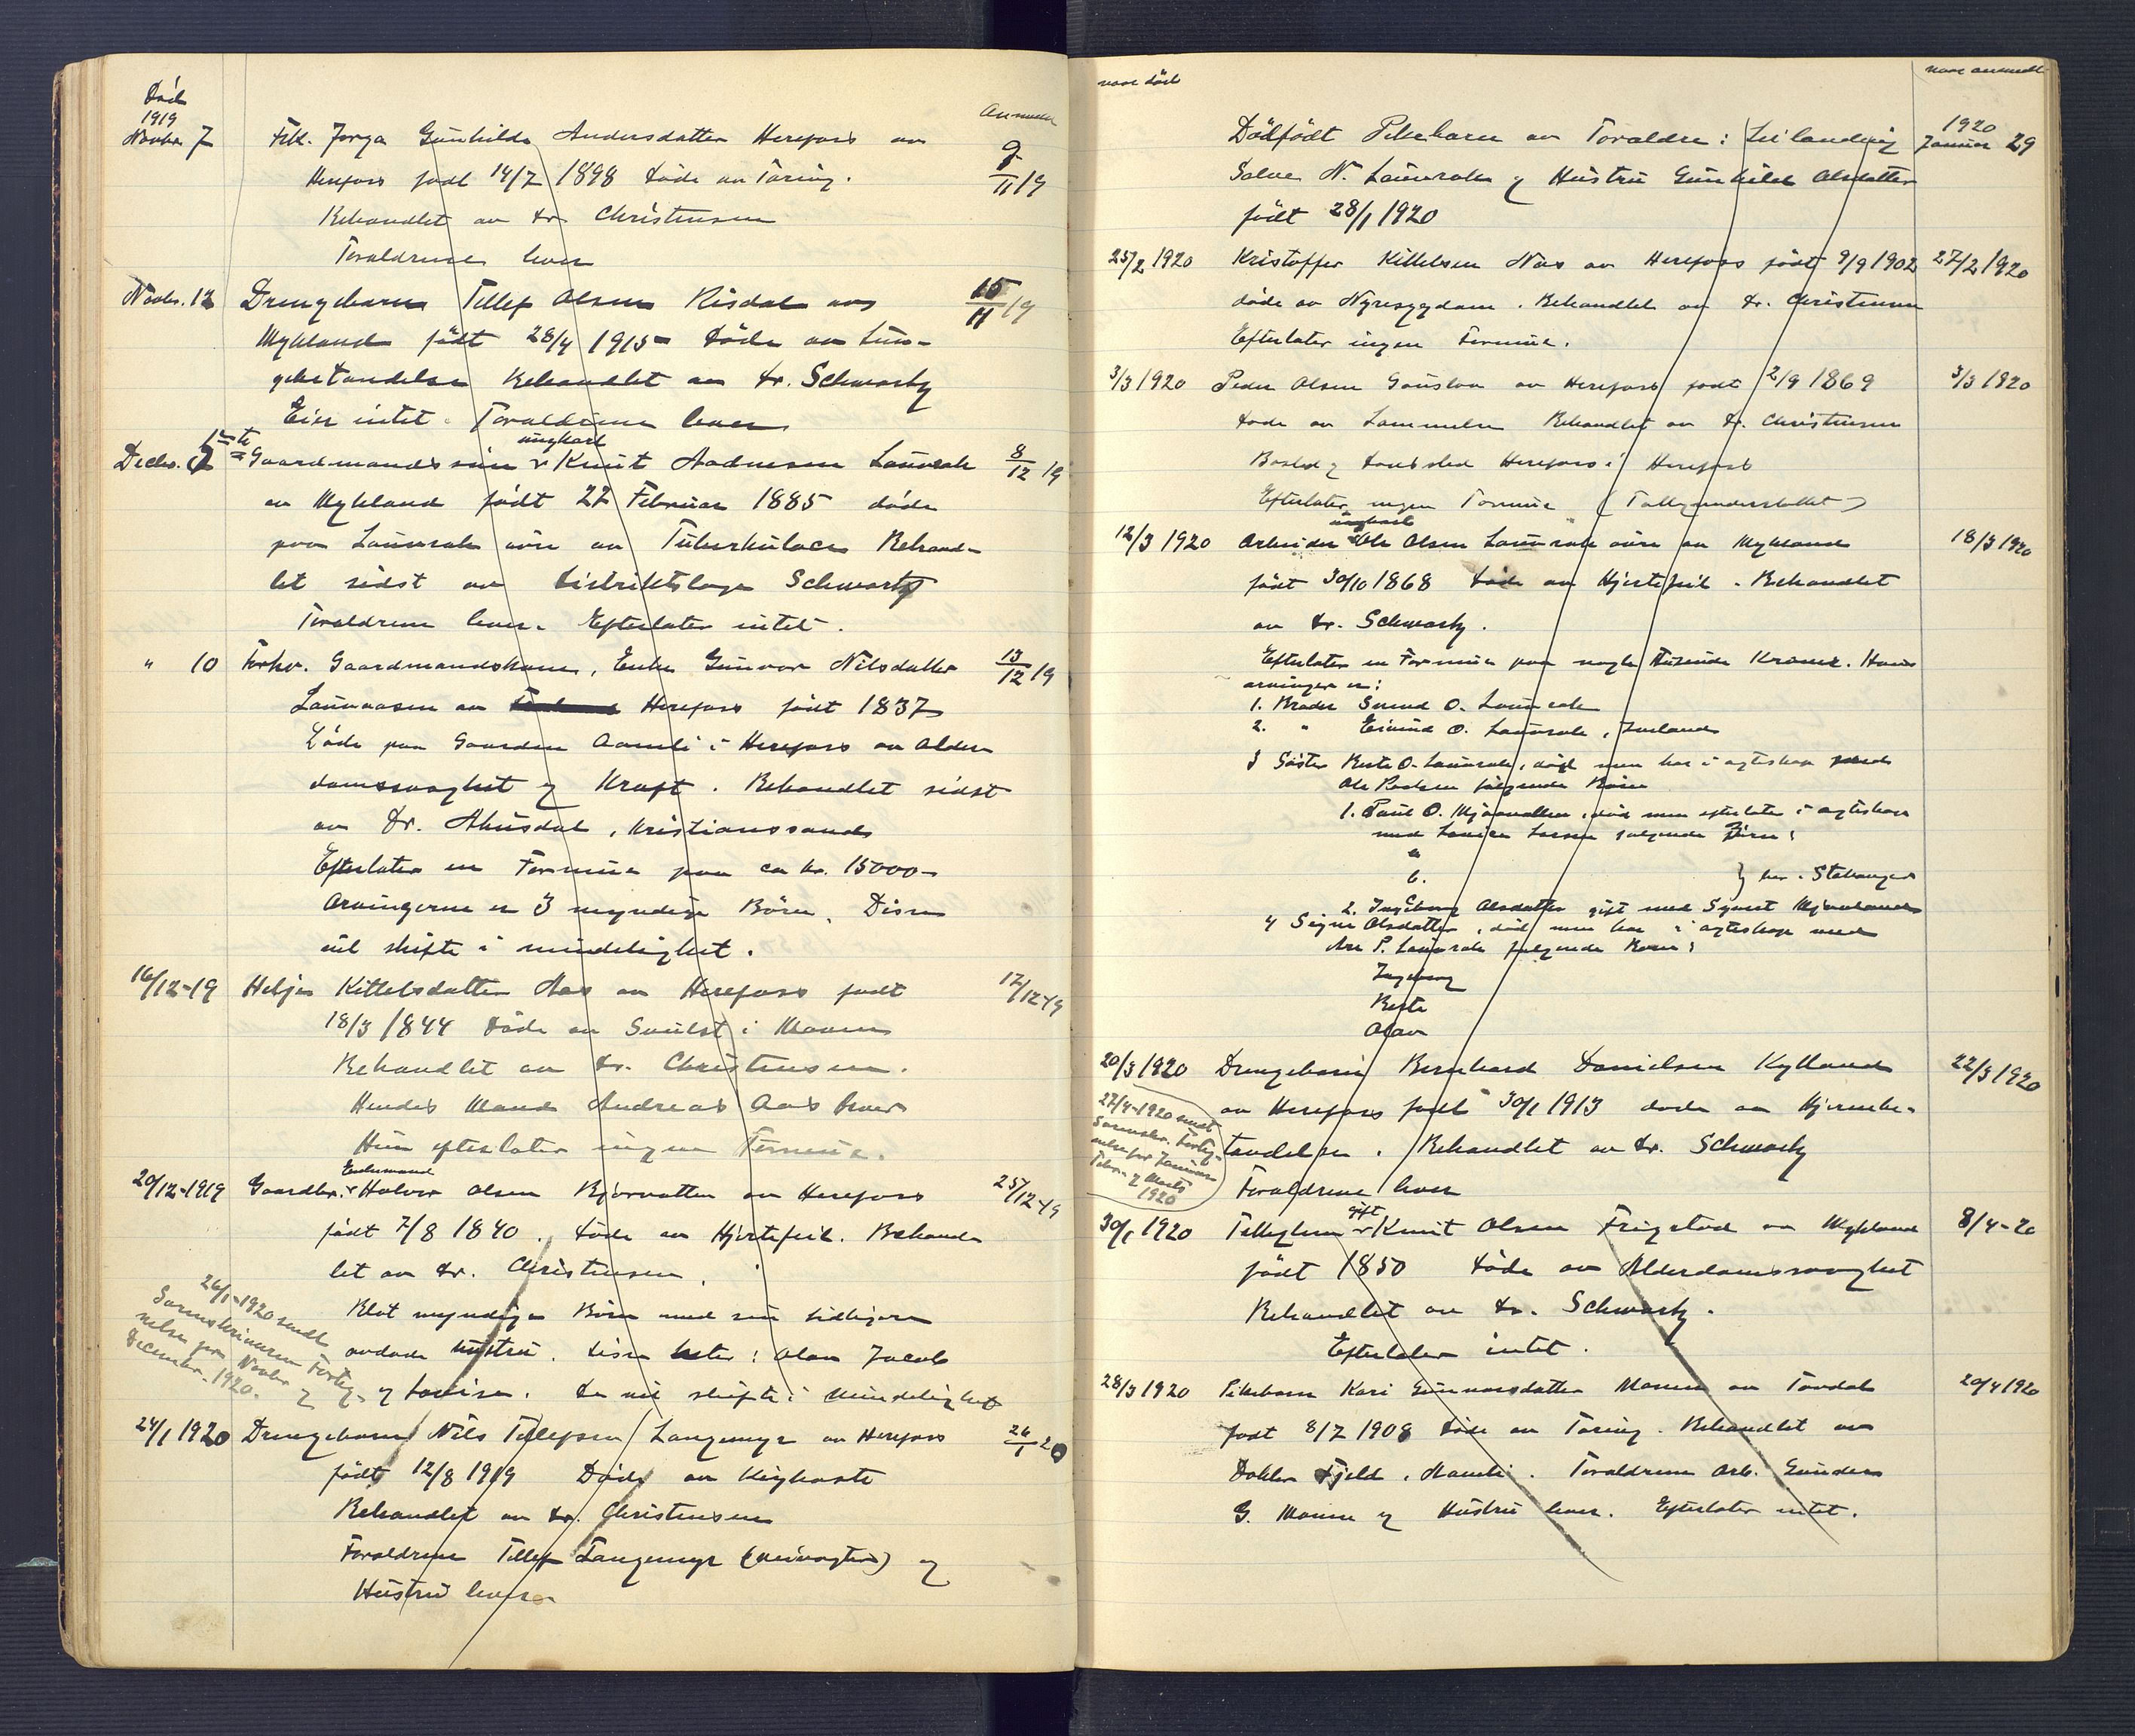 Död
1919
Anmeldt
Novbr. 7 Frk. Jorga Gunhilde Andersdatter Herefoss av 9/11 19
Herefoss født 14/7 1898 döde av Tæring.
Behandlet av Dr. Christensen
Forældrene lever
Novbr. 12 Drengebarn Tellef Olsen Risdal av 15/11 19
Mykland født 28/4 1915 döde av Lun-
gebetændelse Behandlet av Dr. Schwartz
Eier intet. Forældrene lever
ungkarl
Decbr. 1ste Gaardmandssön Knut Aadnesen Laurak 8/12 19
av Mykland född 22 Februar 1885 döde
paa Laurak øvre av Tuberkulose Behand-
let sidst av Distriktslæge Schwartz
Forældrene lever. Efterlater intet.
" 10 Forhv. Gaardmandskone, Enke Gunvor Nilsdatter 13/12 19
Launaasen av Herefoss født 1837
Döde paa Gaarden Aamli i Herefoss av Alder
domssvaghet og Kræft. Behandlet sidst
av Dr. Ahusdal, Kristianssand
Efterlater en Formue paa ca kr. 15000-
Arvingerne er 3 myndige Börn. Disse
vil skifte i mindelighet.
16/12-19 Helje Kittelsdatter Aas av Herefoss født 17/12-19
18/3 1844 döde av Svulst i Maven
Behandlet av Dr. Christensen.
Hendes Mand Andreas Aas lever
Hun efterlater ingen Formue.
Enkemand
20/12-1919 Gaardbr. Halvor Olsen Bjorvatten av Herefoss 25/12-19
født 7/8 1840. döde av Hjertefeil. Behand
let av Dr. Christensen.
Blot myndige Börn med sin tidligere
avdøde hustru. Disse heter: Olav Jacob
og Lovise. De vil skifte i Mindelighet
26/1-1920 sendt
Sorenskriveren Forteg-
nelse for Novbr. og
Decembr. 1920.
24/1 1920 Drengebarn Nils Tellefsen Langemyr av Herefoss 26/1 20
født 12/8 1919 Döde av Kighoste
Behandlet av Dr. Christensen
Forældrene Tellef Langemyr (veivogter) og
Hustru lever
naar död
naar anmeldt
1920
Dödfødt Pikebarn av Forældre: Leilænding Januar 29
Salve N. Laurak og Hustru Gunhild Olsdatter
født 28/1 1920
25/2 1920 Kristoffer Kittelsen Aas av Herefoss født 9/9 1902 27/2 1920
döde av Nyresygdom. Behandlet av Dr. Christensen
Efterlater ingen Formue.
3/3 1920 Peder Olsen Gauslaa av Herefoss født 2/9 1869 3/3 1920
döde av Lammelse Behandlet av Dr. Christensen
Bosted og Dödssted Herefoss i Herefoss
Efterlater ingen Formue (Fattigunderstøttet)
ungkarl
12/3 1920 Arbeider Ole Olsen Laurak øvre av Mykland 18/3 1920
født 30/10 1868 döde av Hjertefeil. Behandlet
av Dr. Schwartz.
Efterlater en Formue paa nogle Tusende Kroner. Hans
arvinger er:
1. Broder Svend O. Laurak
2. " Eivind O. Laurak,
3 Söster Berte O. Laurak, död men har i egteskap med
Ole følgende Börn
1. Paul O. Mjaavatten, död men efterlater i egteskap
med Larsen følgende Börn:
a
b. } bor i Stavanger
2. Ingeborg Olsdatter gift med Syvert Mjaaland
4 Signe Olsdatter, död men har i egteskap med
P. Laurak følgende Børn:
Ingeborg
Berte
Olav
20/3 1920 Drengebarn Bernhard Danielsen Kylland 22/3 1920
av Herefoss født 30/1 1913 døde av Hjernebe-
tændelse. Behandlet av Dr. Schwartz
Forældrene lever
27/4-1920 sendt
Sorenskr. Forteg-
nelse for Januar
Febr. og Marts
1920
gift
30/1 1920 Knut Olsen Frigstad av Mykland 8/4-20
født 1850 döde av Alderdomssvaghet
Behandlet av Dr. Schwartz.
Efterlater intet.
28/3 1920 Pikebarn Kari Gunnarsdatter Moen av Tovdal 20/4 1920
født 8/7 1908 döde av Tæring. Behandlet av
Doktor Fjeld, Aamli. Forældrene Arb. Gunder
G. Moen og Hustru lever. Efterlater intet.